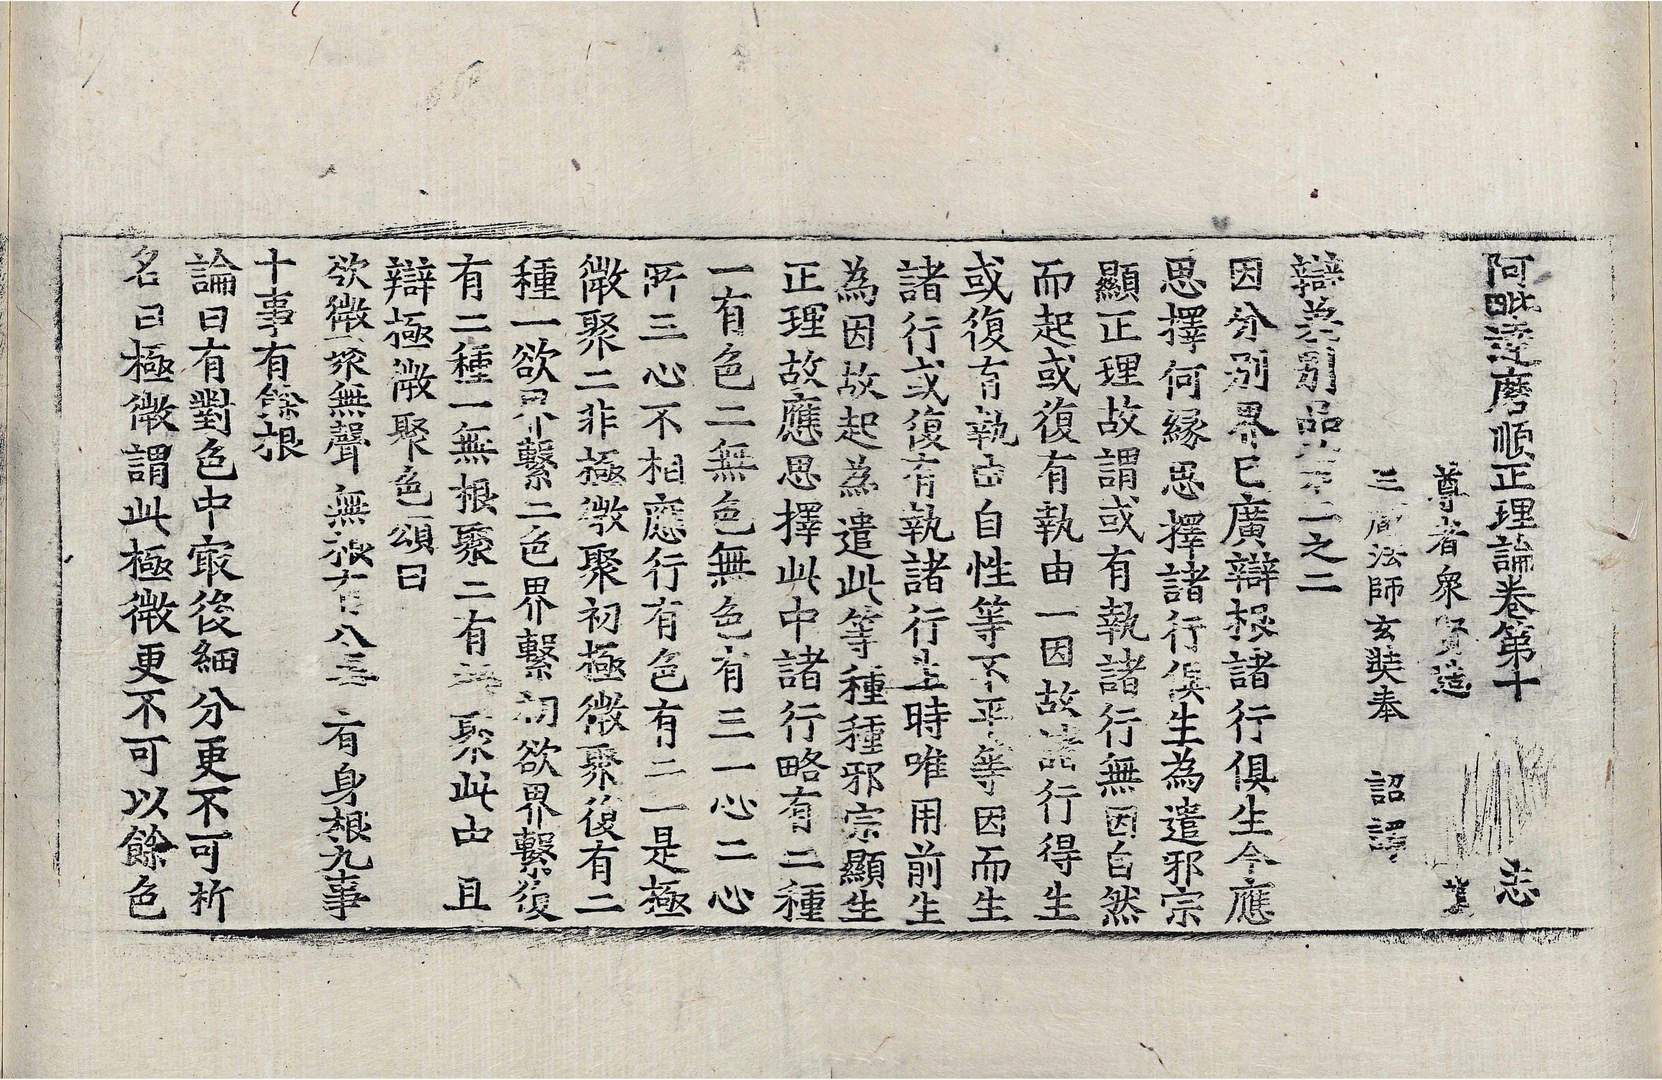 阿毗達磨順正理論卷第十 志
尊者衆賢造
三藏法師玄奘奉 詔譯
辯差別品第二之二
因分別界已廣辯根諸行俱生今應
思擇何緣思擇諸行俱生為遣邪宗
顯正理故謂或有執諸行無因自然
而起或復有執由一因故諸行得生
或復有執由自性等不平等因而生
諸行或復有執諸行生時唯用前生
為因故起為遣此等種種邪宗顯生
正理故應思擇此中諸行略有二種
一有色二無色無色有三一心二心
所三心不相應行有色有二一是極
微聚二非極微聚初極微聚復有二
種一欲界繫二色界繫初欲界繫復
有二種一無根聚二有根聚此中且
辯極微聚色頌曰
欲微聚無聲 無根有八事 有身根九事
十事有餘根
論曰有對色中㝡後細分更不可析
名曰極微謂此極微更不可以餘色